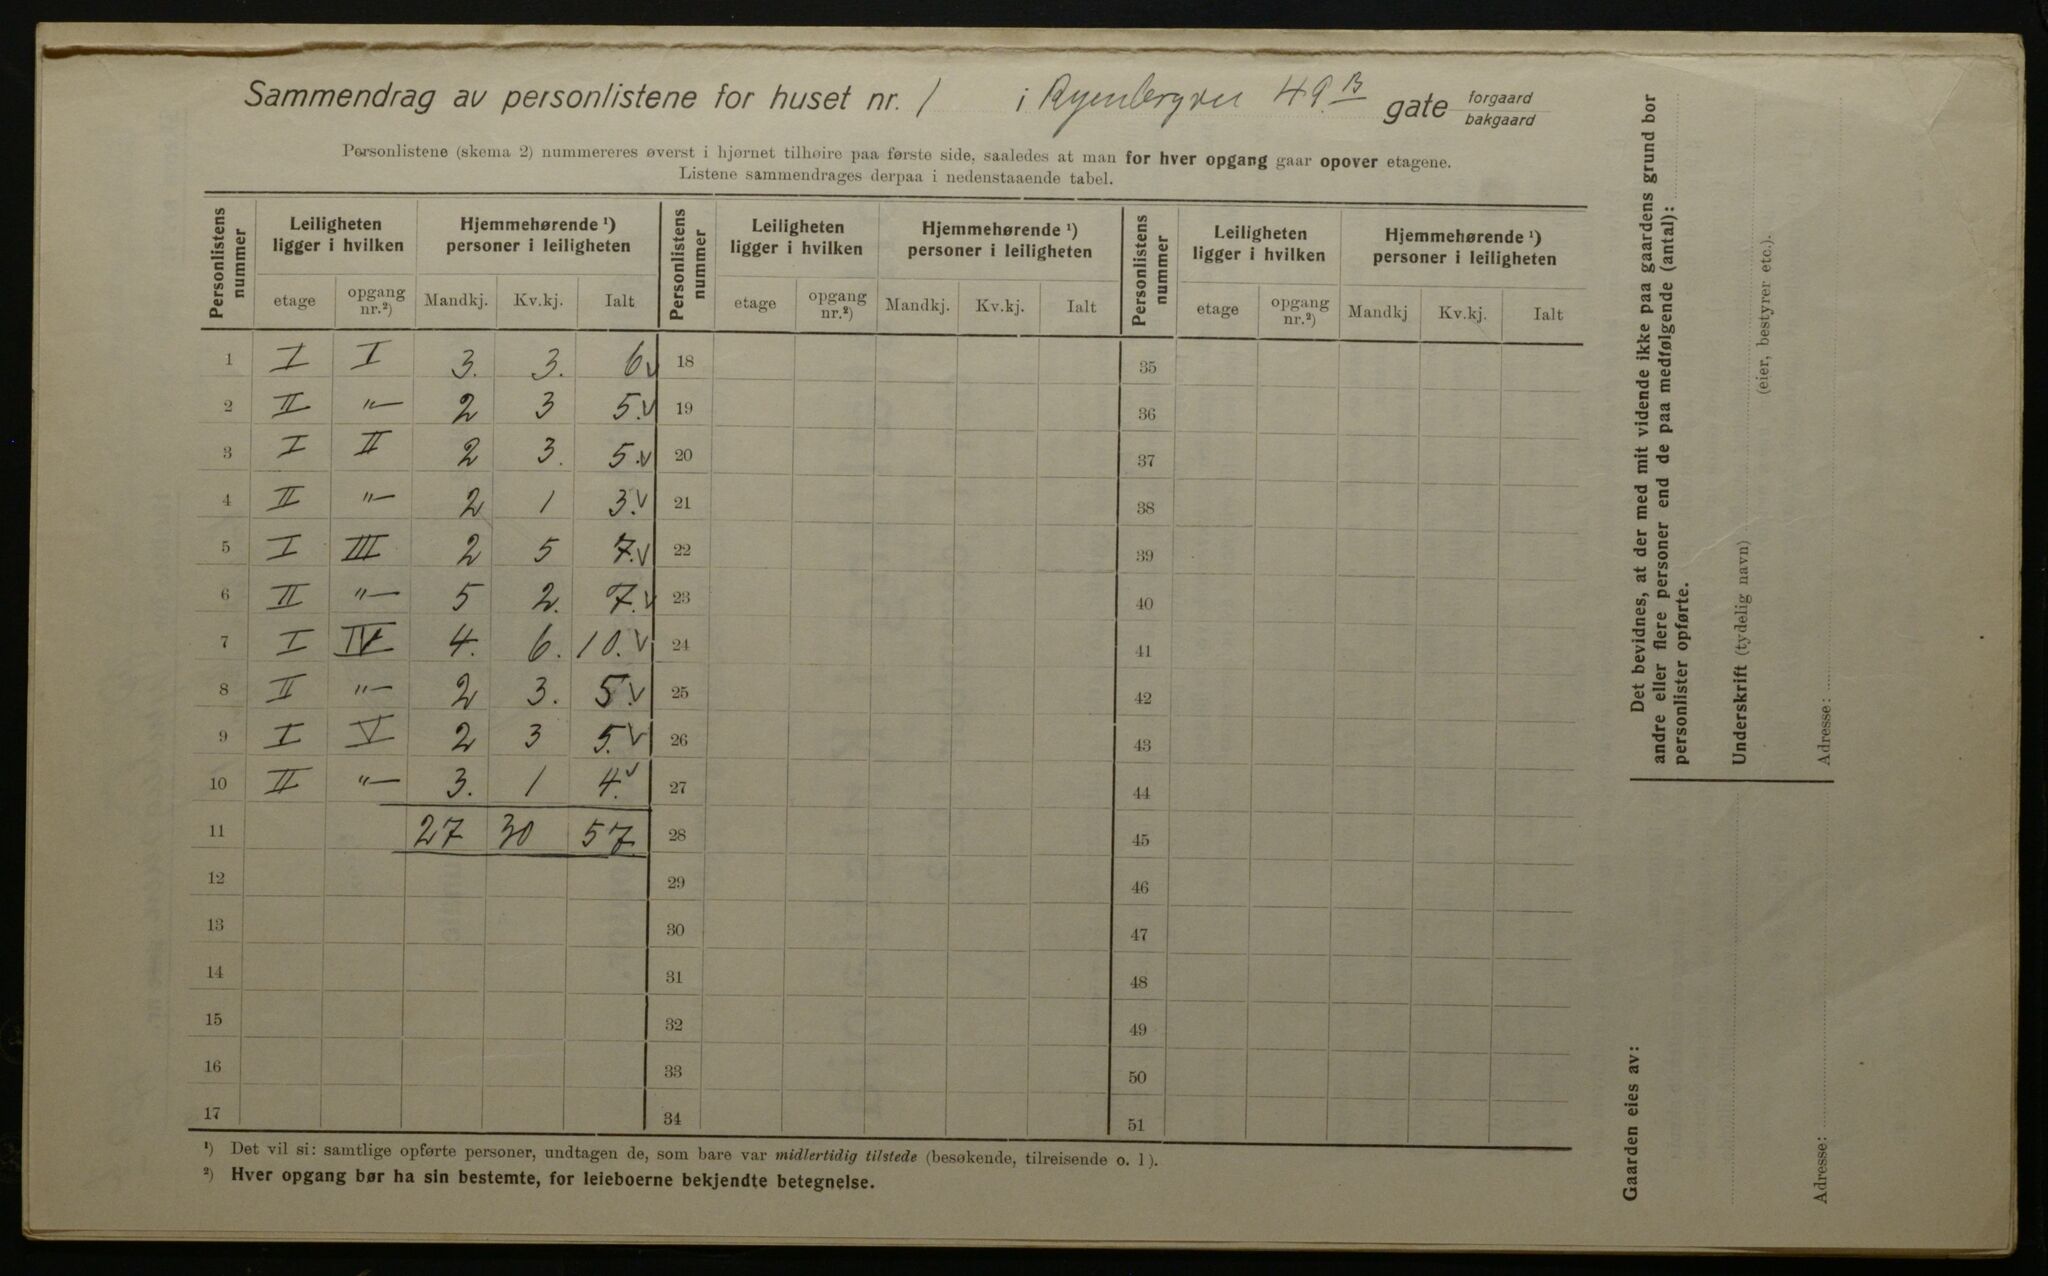 Sammendrag av personlistene for huset nr. 1 i Ryenbergvei 49 B gate forgaard bakgaard
Personlistene (skema 2) nummereres øverst i hjørnet tilhøire paa første side, saaledes at man for hver opgang gaar opover etagene.
Listene sammendrages derpaa i nedenstaaende tabel.
Personlistens nummer | Leiligheten ligger i hvilken | Hjemmehørende ¹) personer i leiligheten | Personlistens nummer | Leiligheten ligger i hvilken | Hjemmehørende ¹) personer i leiligheten | Personlistens nummer | Leiligheten ligger i hvilken | Hjemmehørende ¹) personer i leiligheten
etage | opgang nr.²) | Mandkj. | Kv.kj. | Ialt | etage | opgang nr.²) | Mandkj. | Kv.kj. | Ialt | etage | opgang nr.²) | Mandkj | Kv.kj. | Ialt
1 I I 3. 3. 6 v 18 35
2 II "— 2 3 5. v 19 36
3 I II 2 3. 5. v 20 37
4 II "— 2 1 3. v 21 38
5 I III 2 5 7. v 22 39
6 II "— 5 2. 7. v 23 40
7 I IV 4. 6. 10. v 24 41
8 II "— 2 3. 5. v 25 42
9 I V 2 3 5. v 26 43
10 II "— 3. 1 4. v 27 44
11 27 30 57 28 45
12 29 46
13 30 47
14 31 48
15 32 49
16 33 50
17 34 51
¹) Det vil si: samtlige opførte personer, undtagen de, som bare var midlertidig tilstede (besøkende, tilreisende o. l).
²) Hver opgang bør ha sin bestemte, for leieboerne bekjendte betegnelse.
Det bevidnes, at der med mit vidende ikke paa gaardens grund bor
andre eller flere personer end de paa medfølgende (antal):
personlister opførte.
Underskrift (tydelig navn)
(eier, bestyrer etc.).
Adresse:
Gaarden eies av:
Adresse: